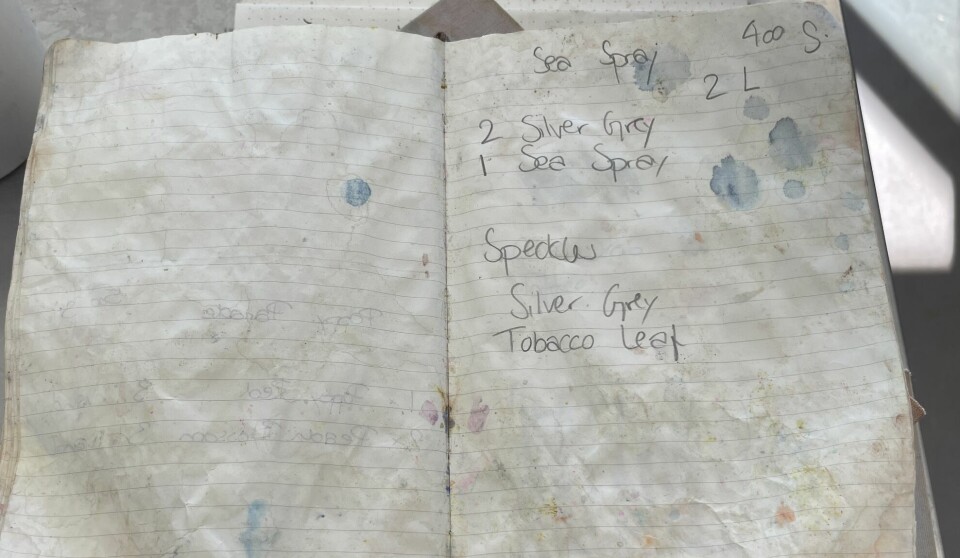 Sea Spray 400 S.
2 L
2 Silver Grey
1 Sea Spray
Speckles
Silver Grey
Tobacco Leaf